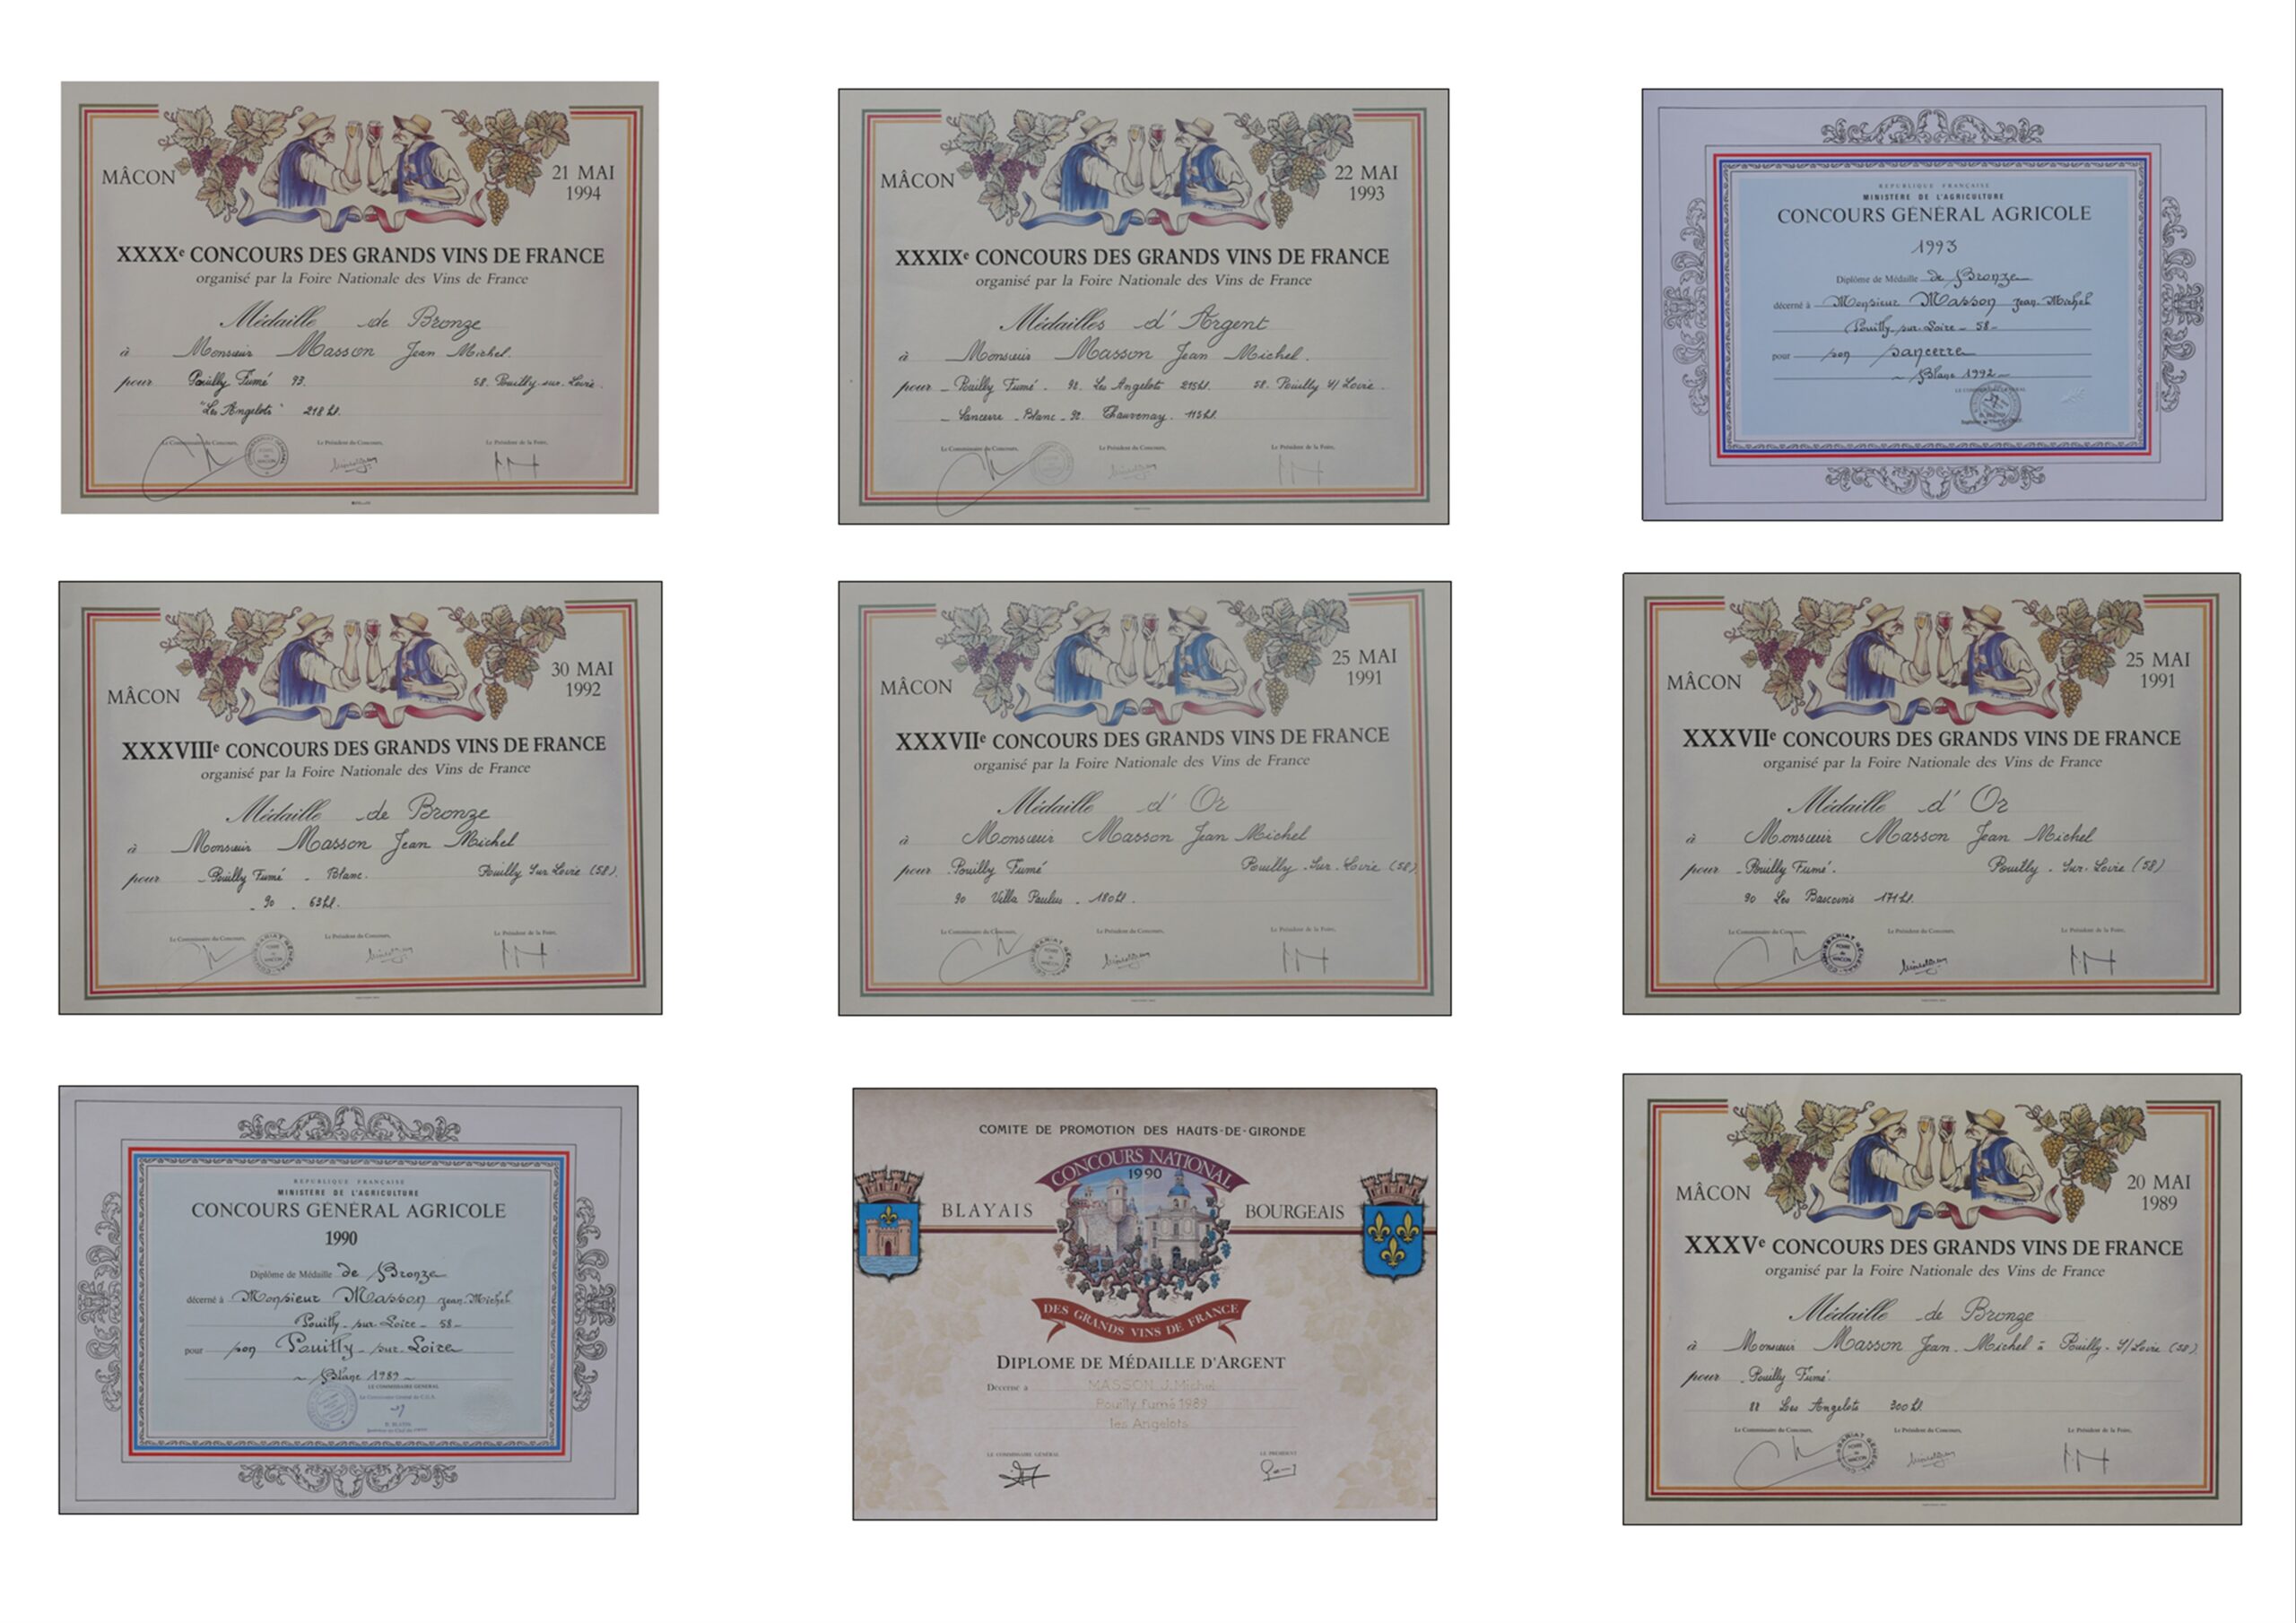 MÂCON
21 MAI
1994
XXXXe CONCOURS DES GRANDS VINS DE FRANCE
organisé par la Foire Nationale des Vins de France
Médaille de Bronze
à Monsieur Masson Jean Michel.
pour Pouilly Fumé 93. 58. Pouilly-sur-Loire.
"Les Angelots" 218 hl.
Le Commissaire du Concours, Le Président du Concours, Le Président de la Foire,
MÂCON
22 MAI
1993
XXXIXe CONCOURS DES GRANDS VINS DE FRANCE
organisé par la Foire Nationale des Vins de France
Médailles d'Argent
à Monsieur Masson Jean Michel.
pour - Pouilly Fumé. 92. Les Angelots 215hl. 58. Pouilly s/ Loire -
- Sancerre - Blanc - 92. Chauvenay. 115hl.
Le Commissaire du Concours, Le Président du Concours, Le Président de la Foire,
REPUBLIQUE FRANÇAISE
MINISTERE DE L'AGRICULTURE
CONCOURS GENERAL AGRICOLE
1993
Diplôme de Médaille de Bronze
décerné à Monsieur Masson Jean-Michel
Pouilly-sur-Loire - 58 -
pour son Sancerre
- Blanc 1992 -
LE COMMISSAIRE GENERAL
MÂCON
30 MAI
1992
XXXVIIIe CONCOURS DES GRANDS VINS DE FRANCE
organisé par la Foire Nationale des Vins de France
Médaille de Bronze
à Monsieur Masson Jean Michel
pour - Pouilly Fumé - Blanc. Pouilly Sur Loire (58).
- 90 - 63hl.
Le Commissaire du Concours, Le Président du Concours, Le Président de la Foire,
MÂCON
25 MAI
1991
XXXVIIe CONCOURS DES GRANDS VINS DE FRANCE
organisé par la Foire Nationale des Vins de France
Médaille d'Or
à Monsieur Masson Jean Michel
pour - Pouilly Fumé Pouilly - Sur - Loire (58)
90 Villa Paulus - 180hl.
Le Commissaire du Concours, Le Président du Concours, Le Président de la Foire,
MÂCON
25 MAI
1991
XXXVIIe CONCOURS DES GRANDS VINS DE FRANCE
organisé par la Foire Nationale des Vins de France
Médaille d'Or
à Monsieur Masson Jean Michel
pour - Pouilly Fumé. Pouilly - Sur - Loire (58)
90 Les 171hl.
Le Commissaire du Concours, Le Président du Concours, Le Président de la Foire,
REPUBLIQUE FRANÇAISE
MINISTERE DE L'AGRICULTURE
CONCOURS GENERAL AGRICOLE
1990
Diplôme de Médaille de Bronze
décerné à Monsieur Masson Jean-Michel
Pouilly-sur-Loire - 58 -
pour son Pouilly-sur-Loire
- Blanc 1989 -
LE COMMISSAIRE GENERAL
COMITE DE PROMOTION DES HAUTS-DE-GIRONDE
CONCOURS NATIONAL
1990
BLAYAIS BOURGEAIS
DES GRANDS VINS DE FRANCE
DIPLOME DE MÉDAILLE D'ARGENT
Décerné à MASSON J.Michel
Pouilly Fumé 1989
les Angelots
LE COMMISSAIRE GÉNÉRAL LE PRÉSIDENT
MÂCON
20 MAI
1989
XXXVe CONCOURS DES GRANDS VINS DE FRANCE
organisé par la Foire Nationale des Vins de France
Médaille de Bronze
à Monsieur Masson Jean - Michel à Pouilly - s/Loire (58)
pour - Pouilly Fumé
88 Les Angelots 300hl.
Le Commissaire du Concours, Le Président du Concours, Le Président de la Foire,